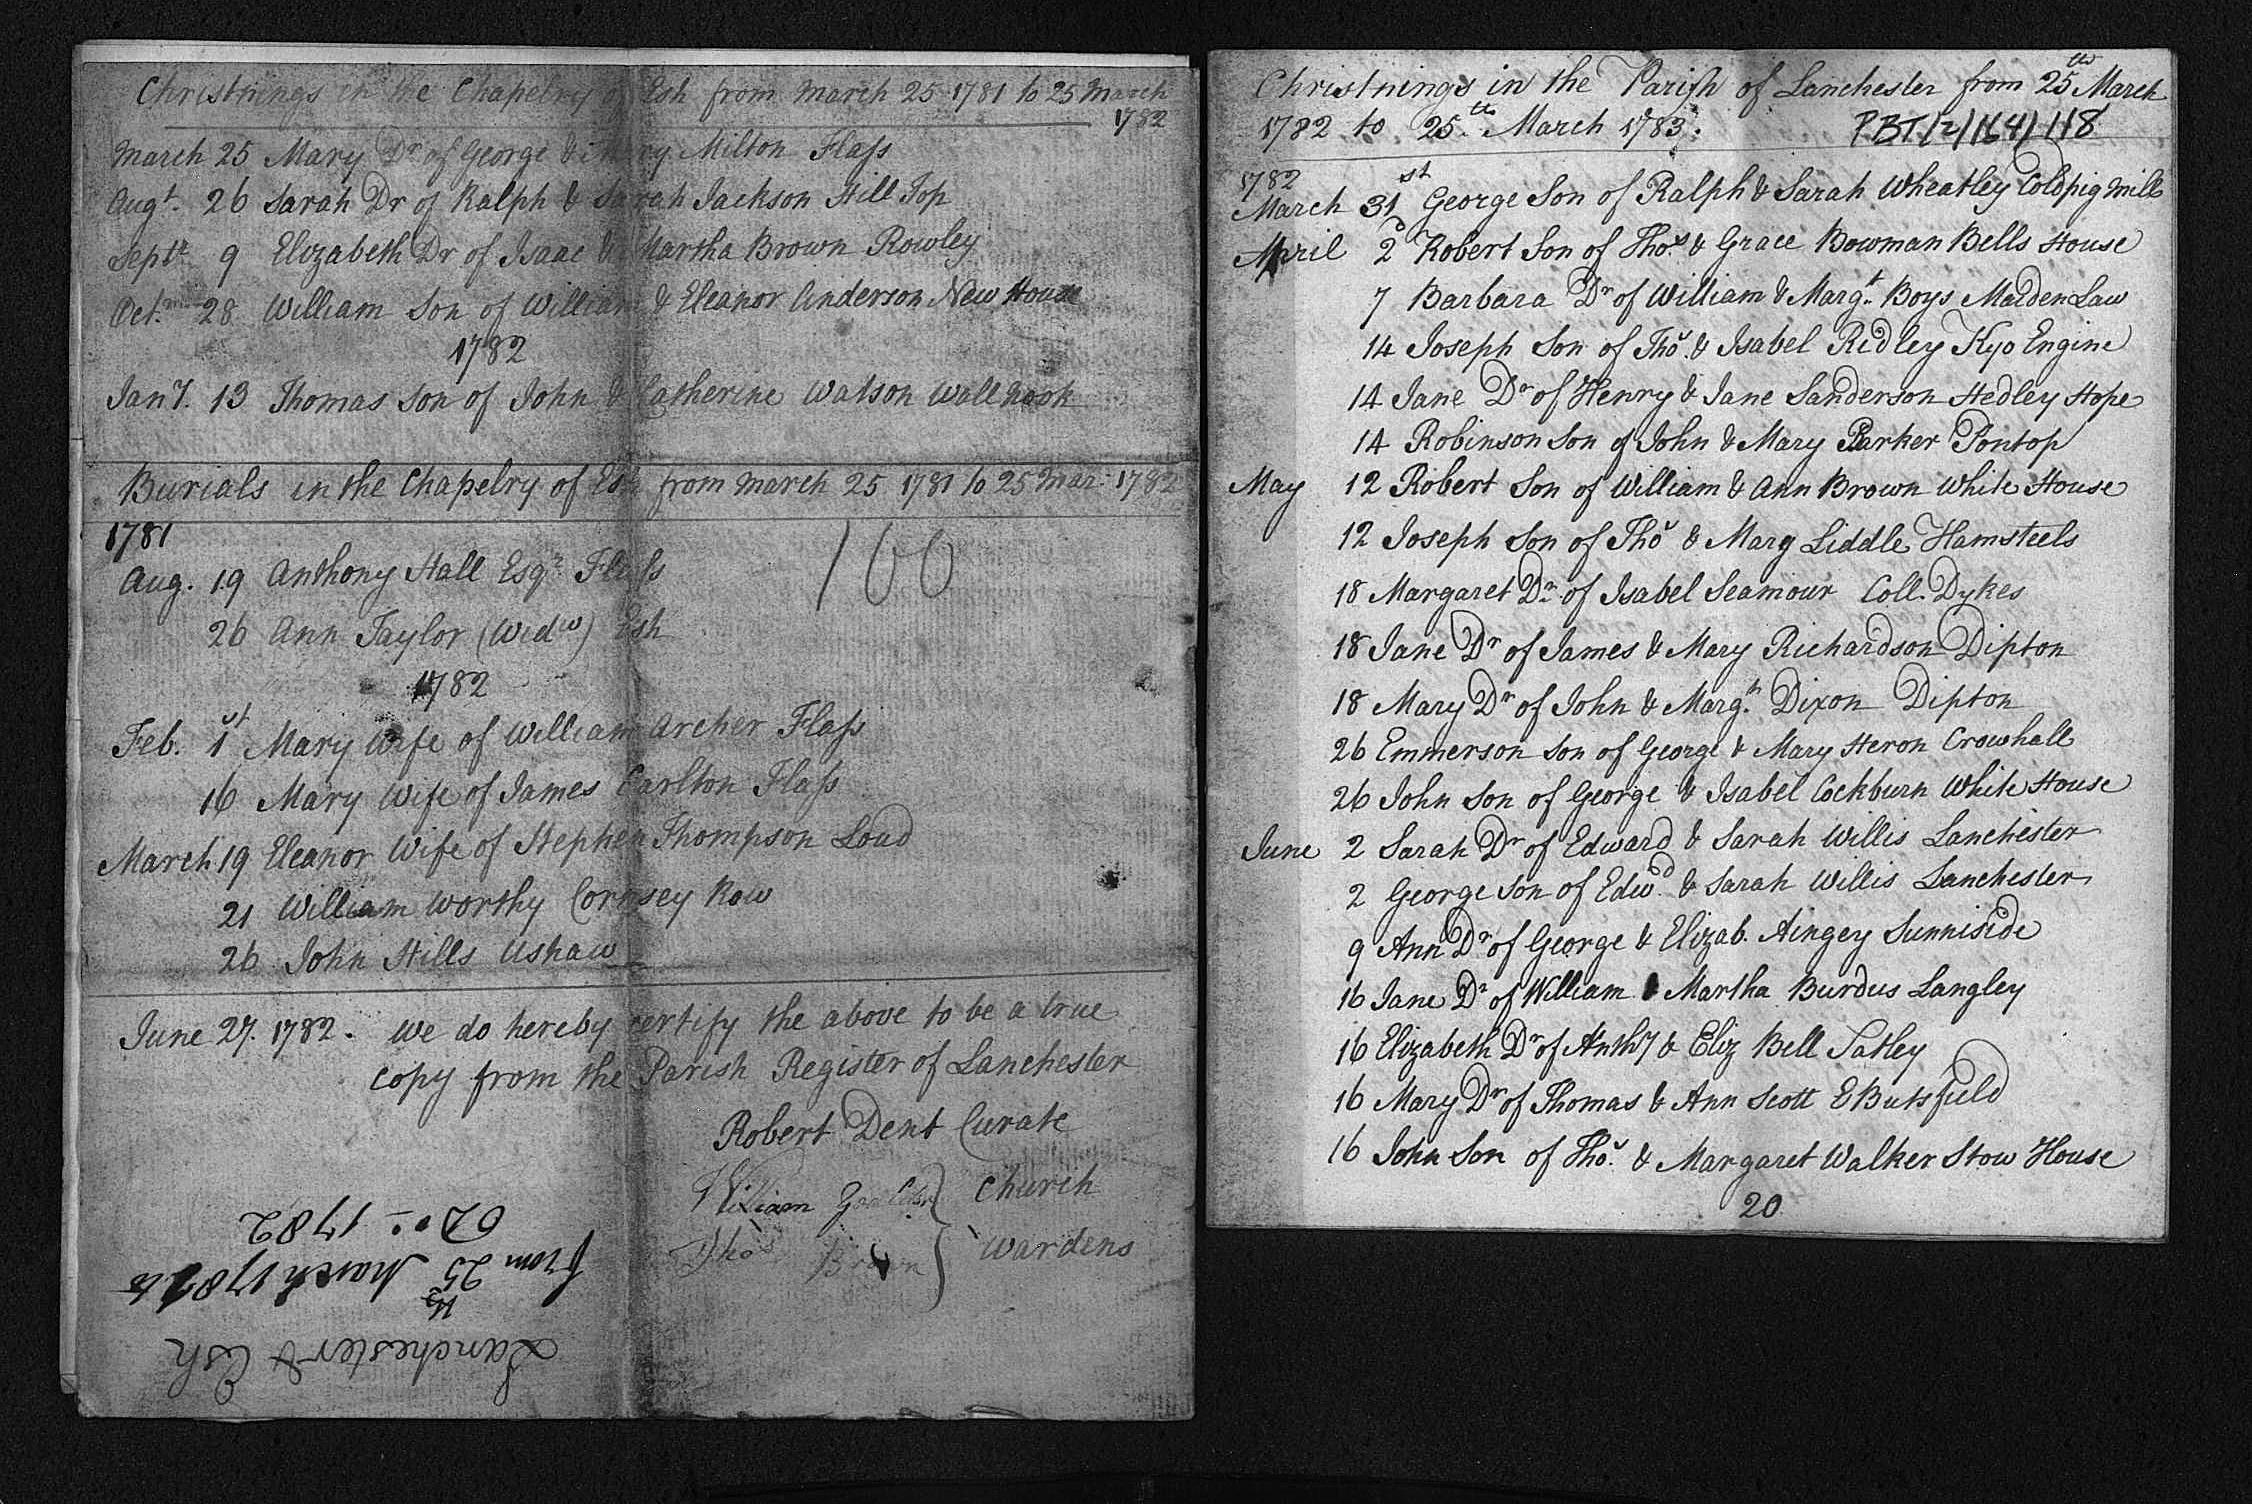 Christnings in the Chapelry of Esh from March 25 1781 to 25 March
1782
March 25 Mary Dr of George & Mary Milton Flass
Augt. 26 Sarah Dr of Ralph & Sarah Jackson Hill Top
Septr 9 Elizabeth Dr of Isaac & Martha Brown Rowley
Oct. 28 William Son of William & Eleanor Anderson New House
1782
Jany. 13 Thomas Son of John & Catherine Watson Wallnook
Burials in the Chapelry of Esh from March 25 1781 to 25 Mar: 1782
1781
100
Aug. 19 Anthony Hall Esqr Flass
26 Ann Taylor (Widw) Esh
1782
Feb. 1st Mary Wife of William Archer Flass
16 Mary Wife of James Carlton Flass
March 19 Eleanor Wife of Stephen Thompson Loud
21 William Worthy Cornsey Row
26 John Hills Ushaw
June 27. 1782. We do hereby certify the above to be a true
copy from the Parish Register of Lanchester
Robert Dent Curate
William Church
Thos Brown Wardens
Lanchester & Esh
from 25th March 1781 to
Do. 1782
Christnings in the Parish of Lanchester from 25th March
1782 to 25th March 1783.
PBT/2/164/118
1782
March 31st George Son of Ralph & Sarah Wheatley Coldpigmill
April 2d Robert Son of Thos & Grace Bowman Bells House
7 Barbara Dr of William & Margt. Boys Maiden Law
14 Joseph Son of Thos. & Isabel Ridley Kyo Engine
14 Jane Dr of Henry & Jane Sanderson Hedley Hope
14 Robinson Son of John & Mary Parker Pontop
May 12 Robert Son of William & Ann Brown White House
12 Joseph Son of Thos & Mary Liddle Hamsteels
18 Margaret Dr of Isabel Seamour Coll. Dykes
18 Jane Dr of James & Mary Richardson Dipton
18 Mary Dr of John & Margt. Dixon Dipton
26 Emmerson Son of George & Mary Heron Crowhall
26 John Son of George & Isabel Cockburn White House
June 2 Sarah Dr of Edward & Sarah Willis Lanchester
2 George Son of Edwd. & Sarah Willis Lanchester
9 Ann Dr of George & Elizab. Aingey Sunniside
16 Jane Dr of William & Martha Burdus Langley
16 Elizabeth Dr of Anthy & Eliz Bell Satley
16 Mary Dr of Thomas & Ann Scott E Butsfield
16 John Son of Thos. & Margaret Walker Stow House
20